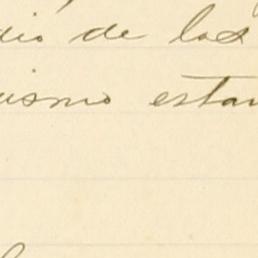 dio de los
uismo estan